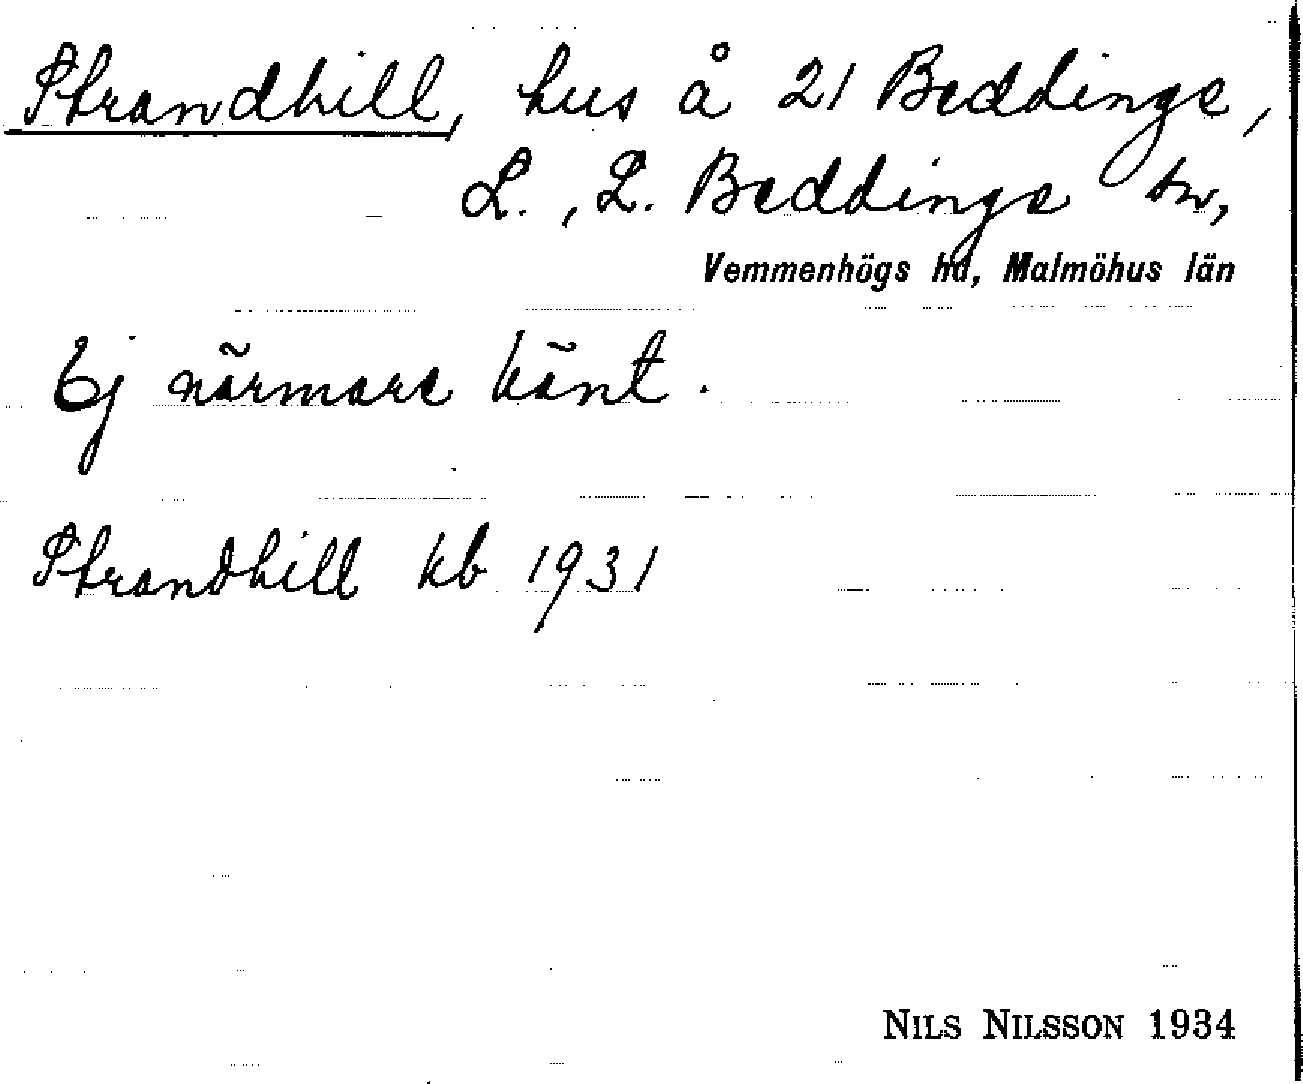 Strandhill, hus å 21 Beddinge,
L., L. Beddinge sn,
Vemmenhögs hd, Malmöhus län
Ej närmare känt.
Strandhill kb 1931
NILS NILSSON 1934